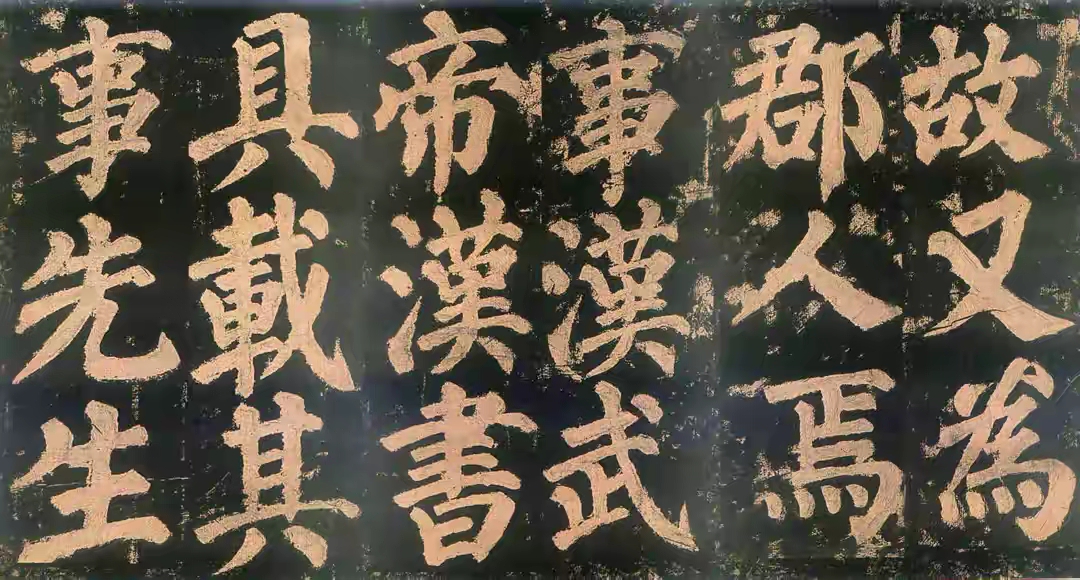 故又為
郡人焉
事漢武
帝漢書
具載其
事先生